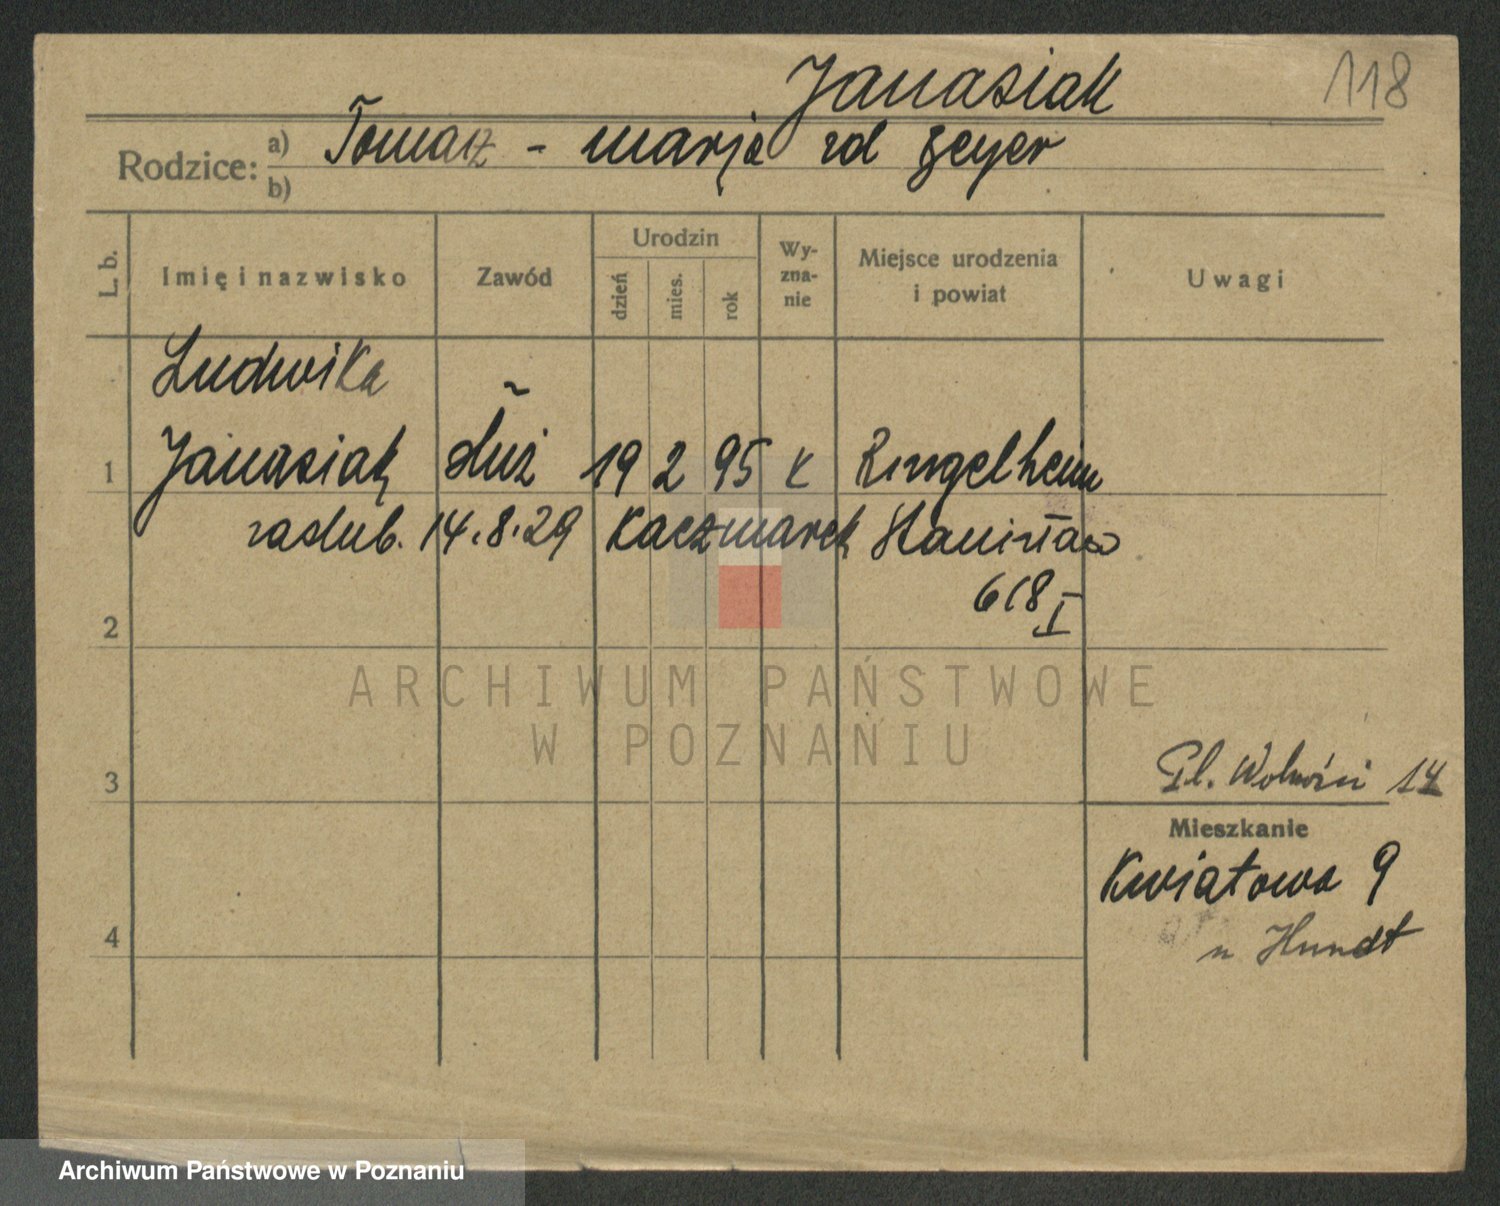 Janasiak 118
Rodzice: a) Tomasz - Marja zd Beyer
b)
L. b. Imię i nazwisko Zawód Urodzin dzień mies. rok Wy-zna-nie Miejsce urodzenia i powiat Uwagi
Ludwika
1 Janasiak służ 19 2 95 K Ringelheim
zaślub. 14.8.29 Kaczmarek Stanisław
618 I
2
ARCHIWUM PAŃSTWOWE
W POZNANIU
3 Pl. Wolności 14
Mieszkanie
Kwiatowa 9
4 u Hundt
Archiwum Państwowe w Poznaniu